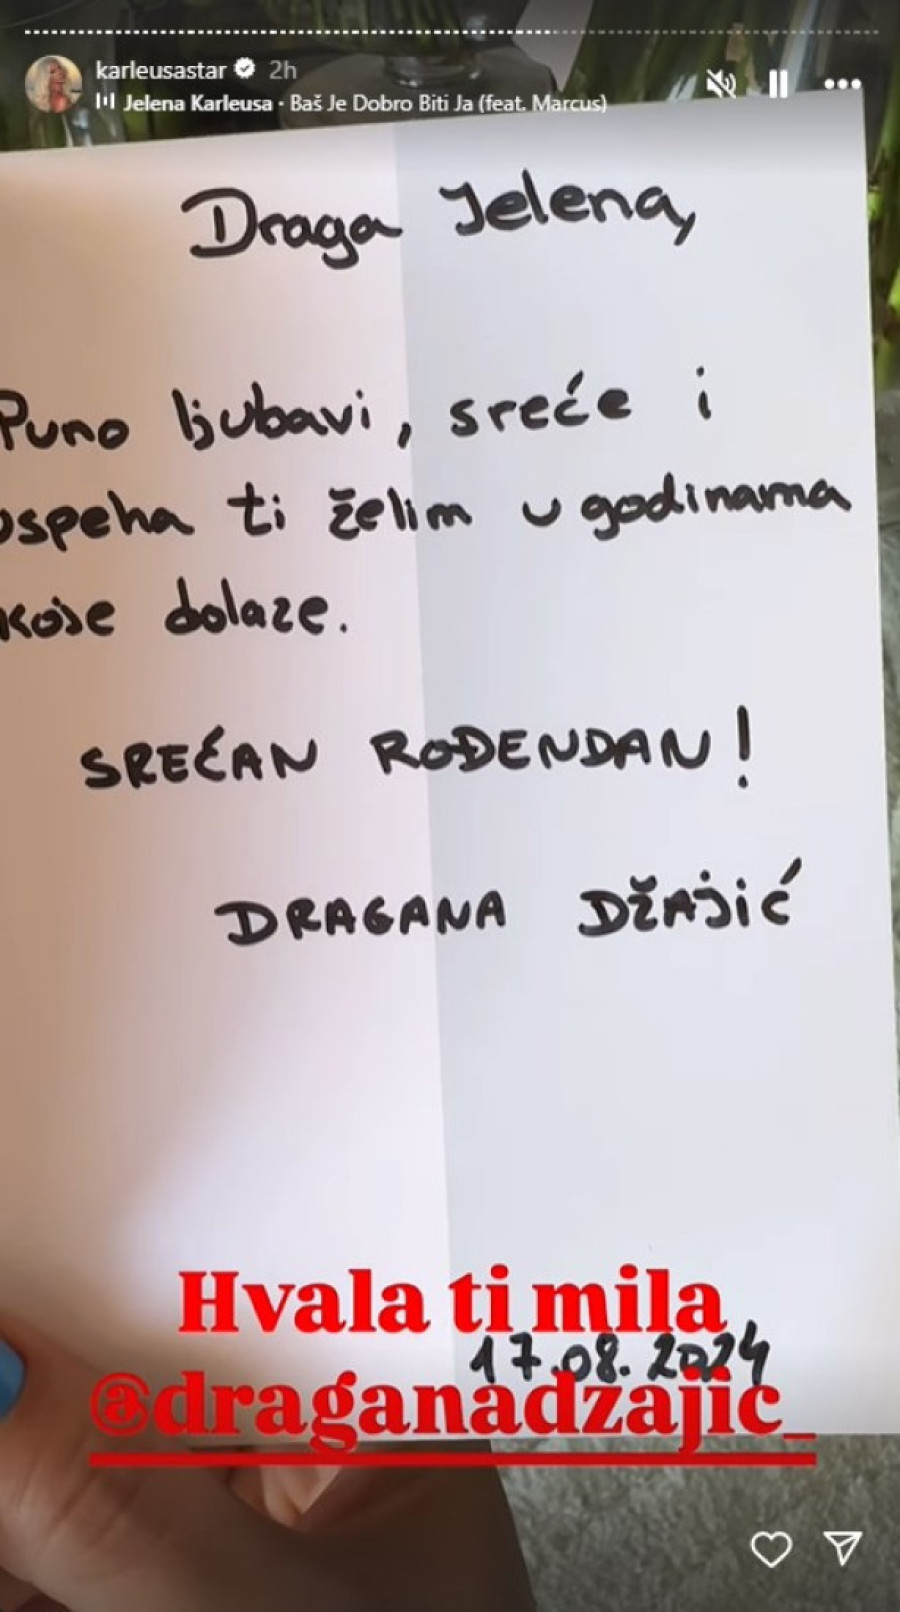 karleusastar 2h
Jelena Karleusa · Baš Je Dobro Biti Ja (feat. Marcus)
Draga Jelena,
Puno ljubavi, sreće i
uspeha ti želim u godinama
koje dolaze.
SREĆAN ROĐENDAN!
DRAGANA DŽAJIĆ
Hvala ti mila
17.08.2024
@draganadzajic_